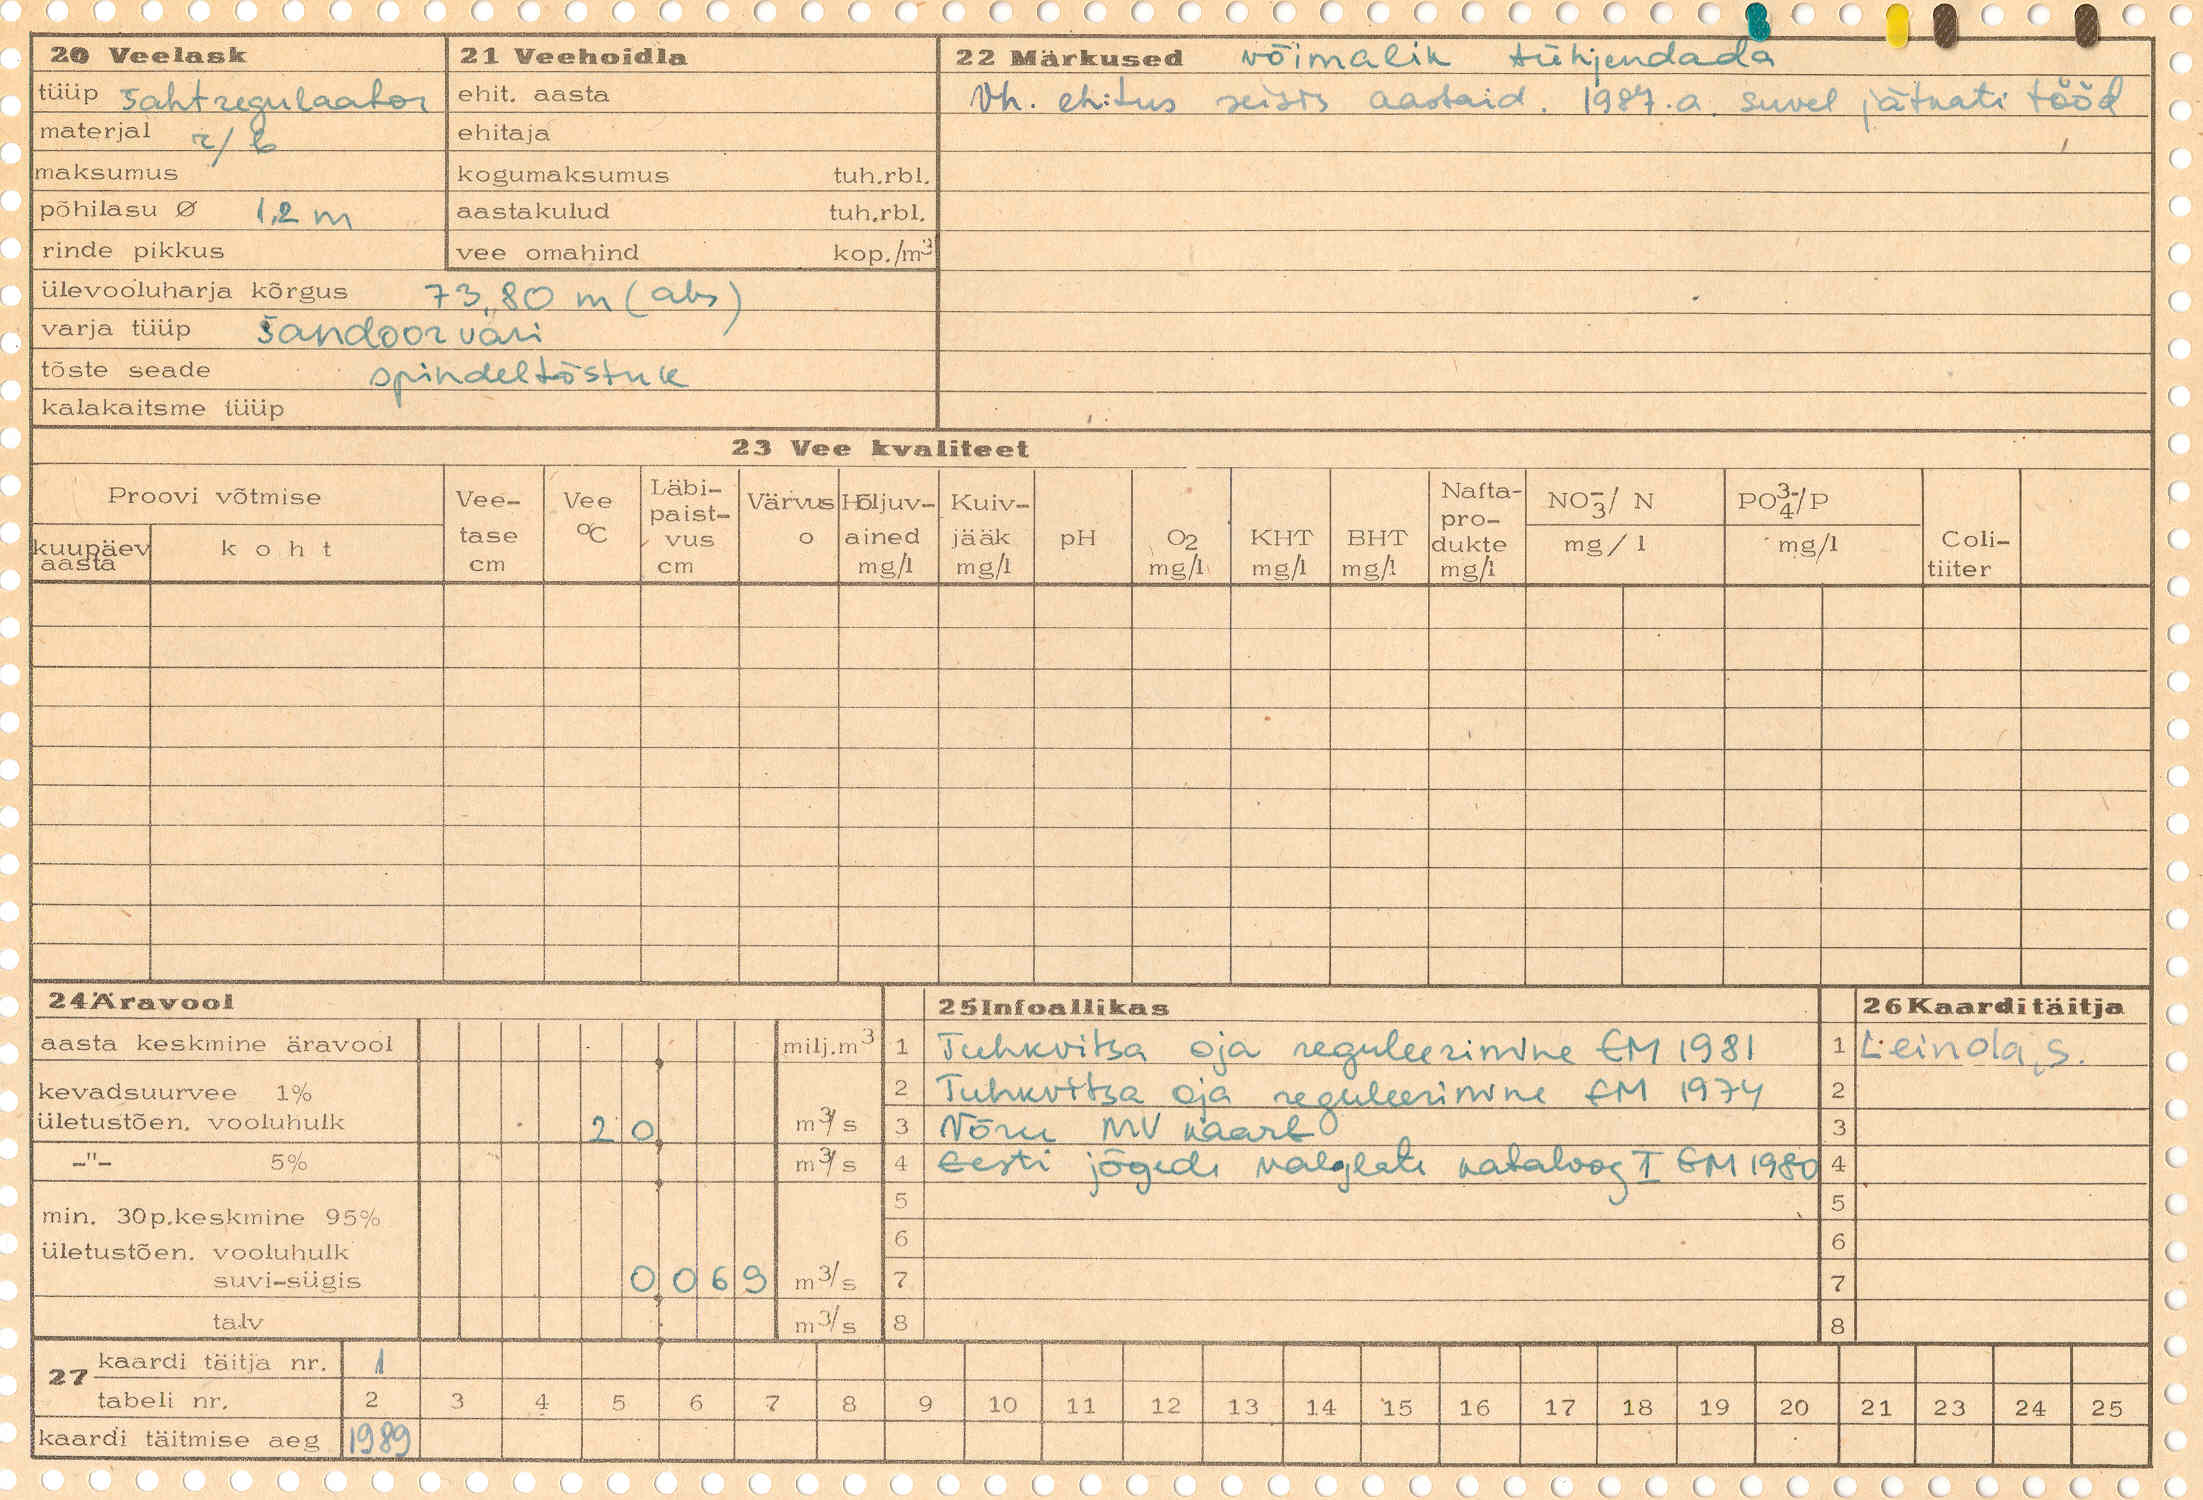 20 Veelask
tüüp šahtregulaator
materjal r/b
maksumus
põhilasu Ø 1,2 m
rinde pikkus
ülevooluharja kõrgus 73,80 m (abs)
varja tüüp šandoorvari
tõste seade spindeltõstuk
kalakaitsme tüüp
21 Veehoidla
ehit. aasta
ehitaja
kogumaksumus tuh.rbl.
aastakulud tuh.rbl.
vee omahind kop./m³
22 Märkused võimalik tühjendada
Vh. ehitus seisis aastaid. 1987.a. suvel jätkati tööd
23 Vee kvaliteet
Proovi võtmise
kuupäev aasta
koht
Vee-tase cm
Vee °C
Läbi-paist-vus cm
Värvus o
Hõljuv-ained mg/l
Kuiv-jääk mg/l
pH
O₂ mg/l
KHT mg/l
BHT mg/l
Nafta-pro-dukte mg/l
NO₃⁻/ N mg/l
PO₄³⁻/P mg/l
Coli-tiiter
24 Äravool
aasta keskmine äravool milj.m³
kevadsuurvee 1%
ületustõen. vooluhulk 20 m³/s
-"- 5% m³/s
min. 30p.keskmine 95%
ületustõen. vooluhulk
suvi-sügis 0 069 m³/s
talv m³/s
25 Infoallikas
1 Tuhkvitsa oja reguleerimine EM 1981
2 Tuhkvitsa oja reguleerimine EM 1974
3 Võru MV kaart
4 Eesti jõgede valglate kataloog I EM 1980
5
6
7
8
26 Kaarditäitja
1 Leinola, S.
2
3
4
5
6
7
8
27
kaardi täitja nr. 1
tabeli nr. 2 3 4 5 6 7 8 9 10 11 12 13 14 15 16 17 18 19 20 21 23 24 25
kaardi täitmise aeg 1989